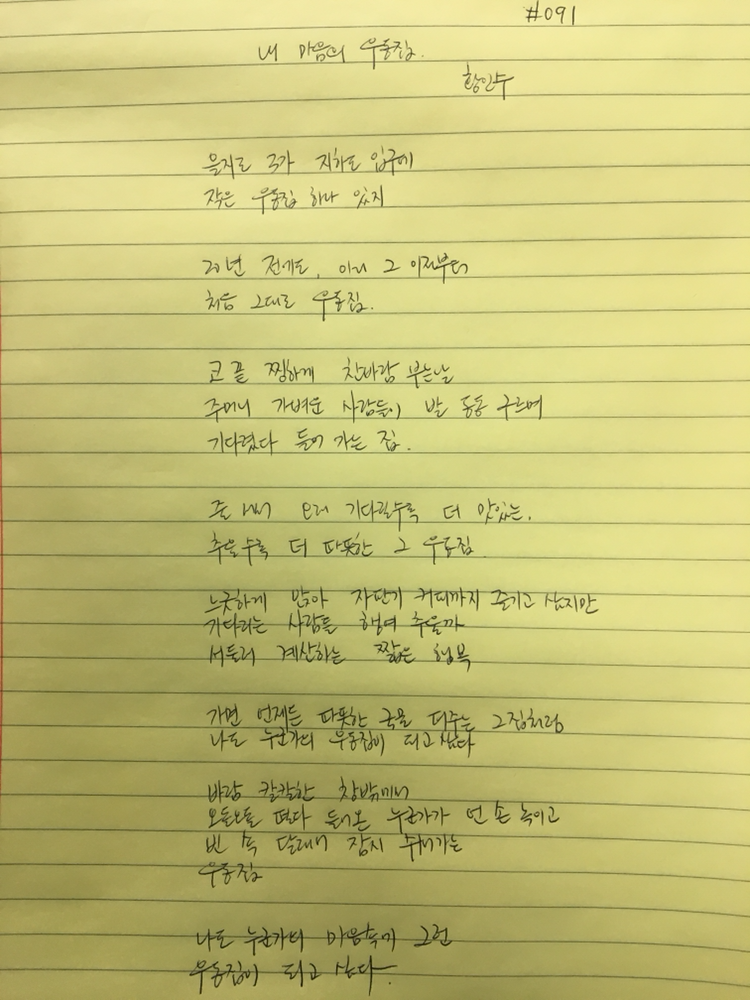 #091
내 마음의 우동집.
황인수
을지로 3가 지하도 입구에
작은 우동집 하나 있지
20년 전에도, 아니 그 이전부터
처음 그대로 우동집.
코 끝 찡하게 찬바람 부는날
주머니 가벼운 사람들이 발 동동 구르며
기다렸다 들어 가는 집.
줄 서서 오래 기다릴수록 더 맛있는.
추울수록 더 따뜻한 그 우동집.
느긋하게 앉아 자판기 커피까지 즐기고 싶지만
기다리는 사람들 행여 추울까
서둘러 계산하는 짧은 행복
가면 언제든 따뜻한 국물 떠주는 그집처럼
나도 누군가의 우동집이 되고싶다
바람 칼칼한 창밖에서
오들오들 떨다 들어온 누군가가 언 손 녹이고
빈 속 달래며 잠시 쉬어가는
우동집
나도 누군가의 마음속에 그런
우동집이 되고 싶다.